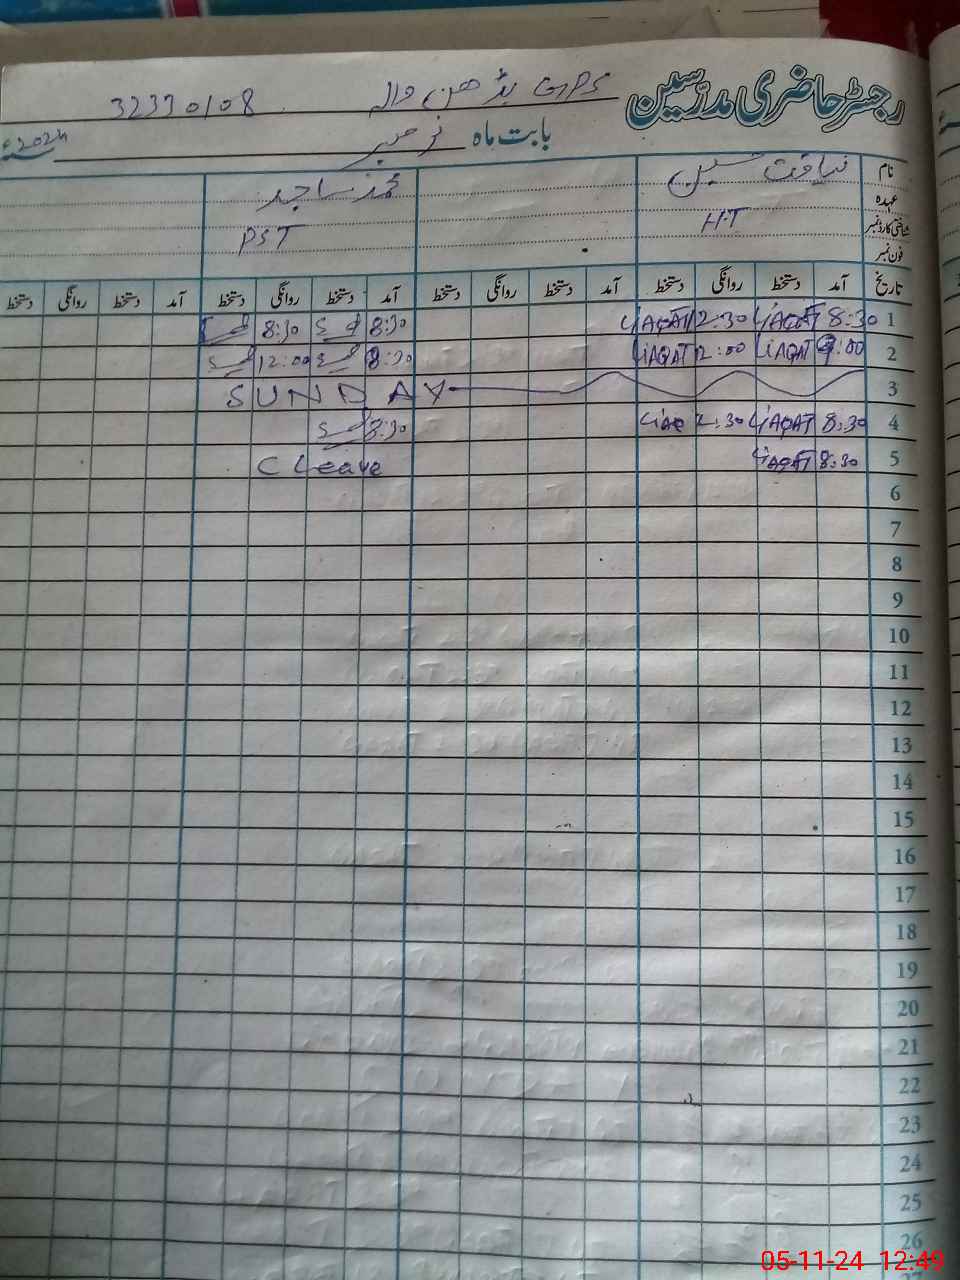 رجسٹر حاضری مدرسین
GPS بڈھن والہ 32330108
بابت ماہ نومبر 2024ء
نام لیاقت حسین محمد ساجد
عہدہ
شناختی کارڈ نمبر H.T PST
فون نمبر
تاریخ آمد دستخط روانگی دستخط آمد دستخط روانگی دستخط آمد دستخط روانگی دستخط آمد دستخط روانگی دستخط
1 8:30 LiAQAT 12:30 LiAQAT 8:30 8:30
2 9:00 LiAQAT 12:00 LiAQAT 8:30 12:00
3 SUNDAY
4 8:30 LiAQAT 2:30 LiAQ 8:30
5 8:30 LiAQAT C Leave
6
7
8
9
10
11
12
13
14
15
16
17
18
19
20
21
22
23
24
25
26
05-11-24 12:49